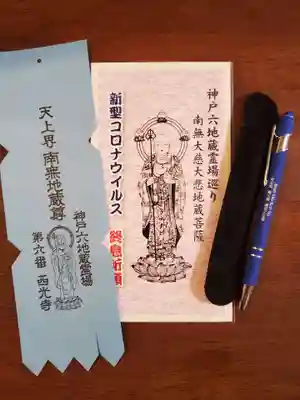 神戸六地蔵霊場巡り
南無大慈大悲地蔵菩薩
新型コロナウイルス 終息祈願
天上界 南無地蔵尊
神戸六地蔵霊場
第六番 西光寺